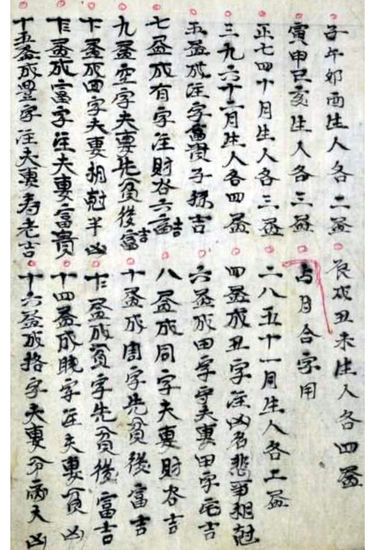 子午卯酉生人各二盏 辰戌丑未生人各四盏
寅申巳亥生人各三盏 与月合字用
正七四十月生人各三盏 二八五十一月生人各二盏
三九六十二月生人各四盏 四盏成丑字注凶多悲事相尅
五盏成注字富贵子孫吉 六盏成田字守夫妻田字宅吉
七盏成有字注財谷六畜吉 八盏成同字夫妻財谷吉
九盏空字夫妻先貧後富吉 十盏成周字先貧後富吉
十一盏成四字夫妻相尅半凶 十二盏成貧字先貧後富吉
十三盏成富字注夫妻富貴 十四盏成晚字注夫妻貧凶
十五盏成豊字注夫妻寿老吉 十六盏成格字夫妻分兩大凶